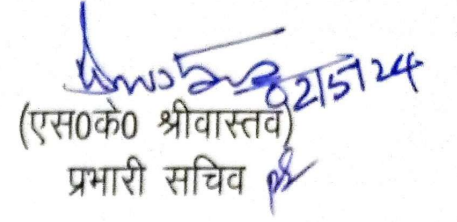 02/5/24
(एस0के0 श्रीवास्तव)
प्रभारी सचिव